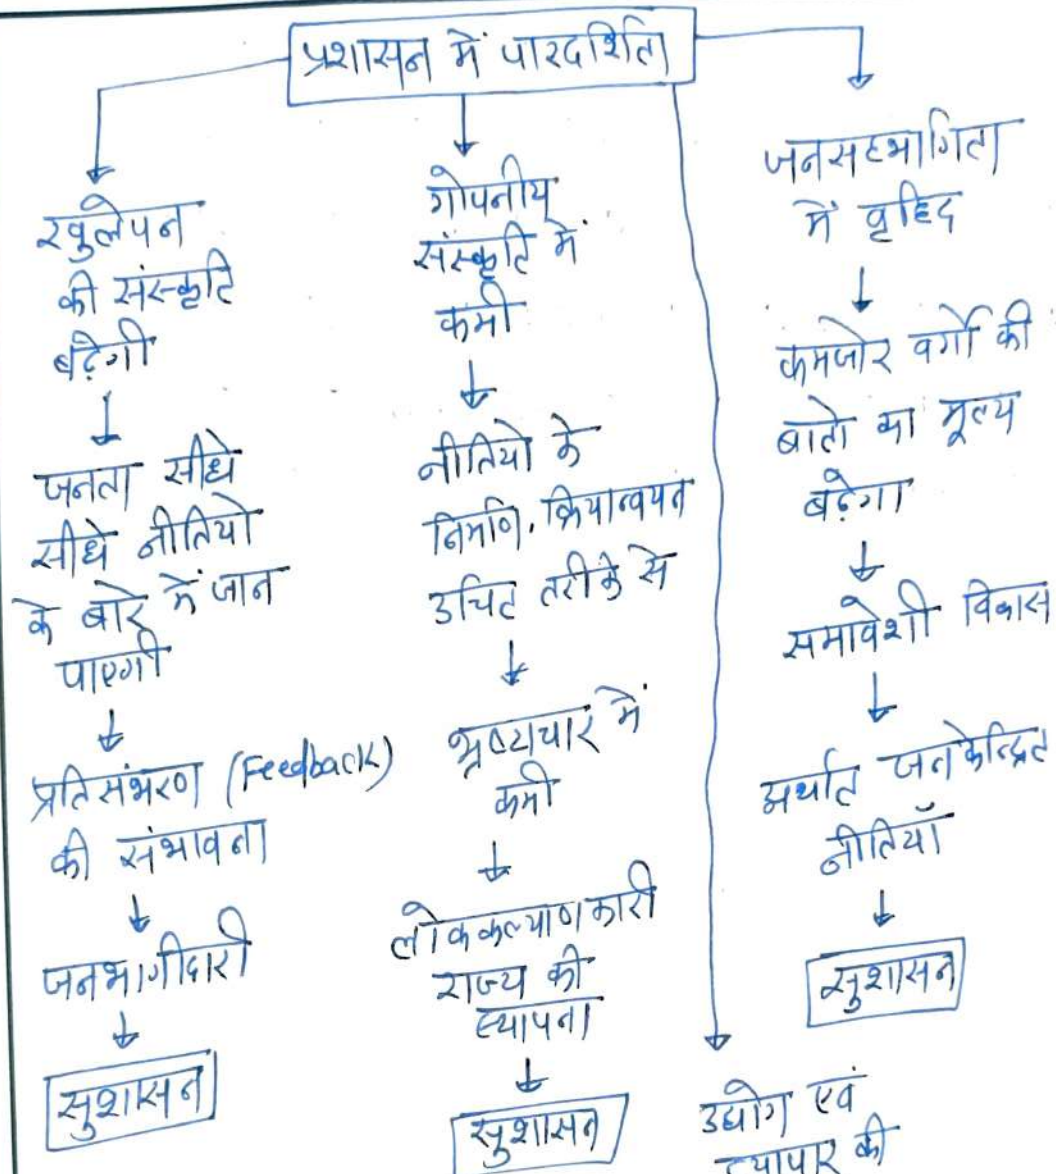 प्रशासन में पारदर्शिता
खुलेपन
की संस्कृति
बढ़ेगी
जनता सीधे
सीधे नीतियो
के बारे में जान
पाएगी
प्रतिसंभरण (Feedback)
की संभावना
जनभागीदारी
सुशासन
गोपनीय
संस्कृति में
कमी
नीतियो के
निर्माण, क्रियान्वयन
उचित तरीके से
भ्रष्टाचार में
कमी
लोककल्याणकारी
राज्य की
स्थापना
सुशासन
जनसहभागिता
में वृद्दि
कमजोर वर्गो की
बातो का मूल्य
बढ़ेगा
समावेशी विकास
अर्थात जनकेन्द्रित
नीतियाँ
सुशासन
उद्योग एवं
व्यापार की